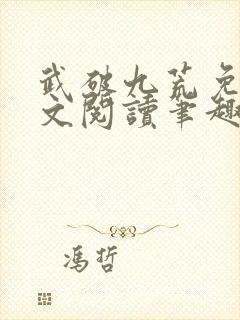 武破九荒免
文閱讀筆趣
馮哲